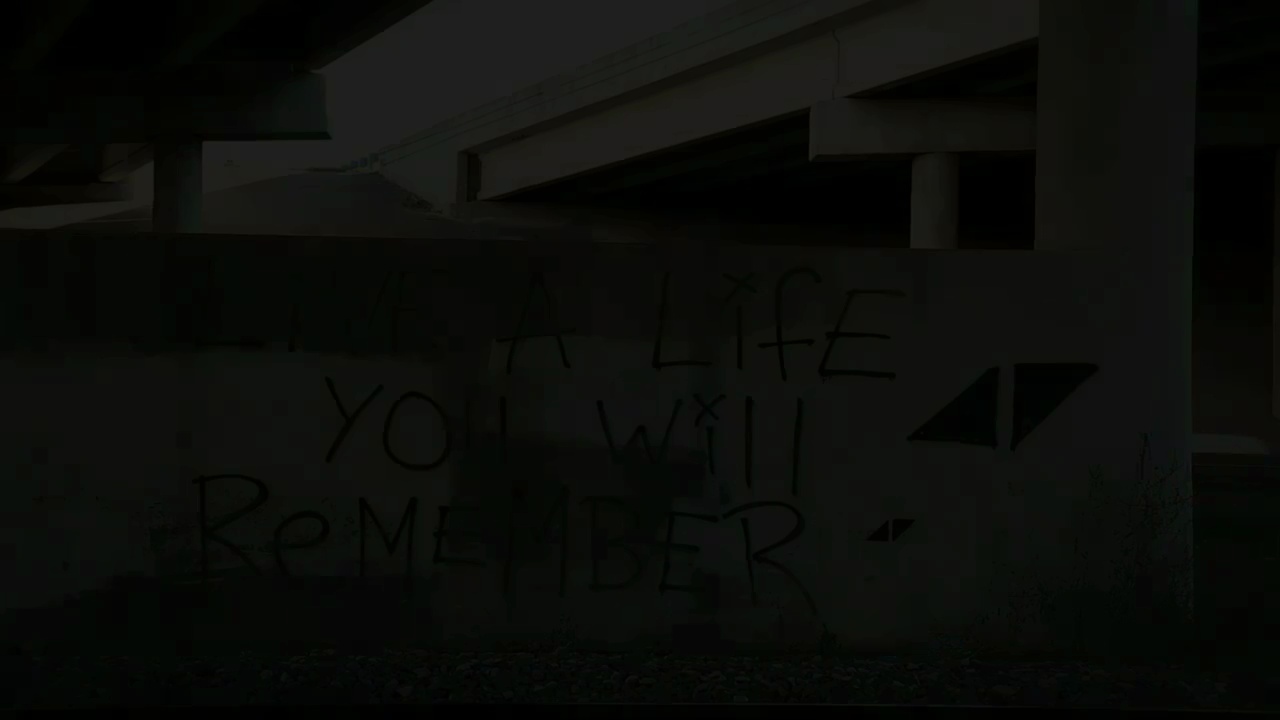 LIVE A LifE
YOU Will
ReMEMBER